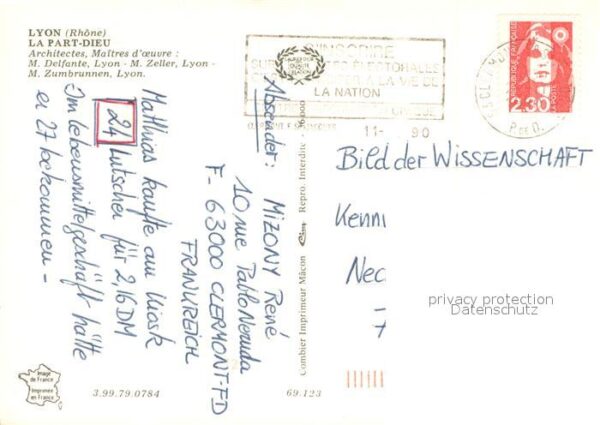 LYON (Rhône)
LA PART-DIEU
Architectes, Maîtres d'œuvre :
M. Delfante, Lyon - M. Zeller, Lyon -
M. Zumbrunnen, Lyon.
S'INSCRIRE
SUR LES LISTES ÉLECTORALES
A LA VIE DE
LA NATION
11- 90
RÉPUBLIQUE FRANÇAISE
2.30
LA POSTE
P. DE D.
Matthias kaufte am Kiosk
24 Lutscher für 2,16 DM
Im Lebensmittelgeschäft hätte
er 27 bekommen -
Absender: MIZONY René
10 rue Pablo Neruda
F- 63000 CLERMONT-FD
FRANKREICH
Combier Imprimeur Mâcon Cim Repro. Interdite
Bild der WISSENSCHAFT
Kenn
Nec
privacy protection
Datenschutz
Image
de France
Imprimée
en France
3.99.79.0784
69.123